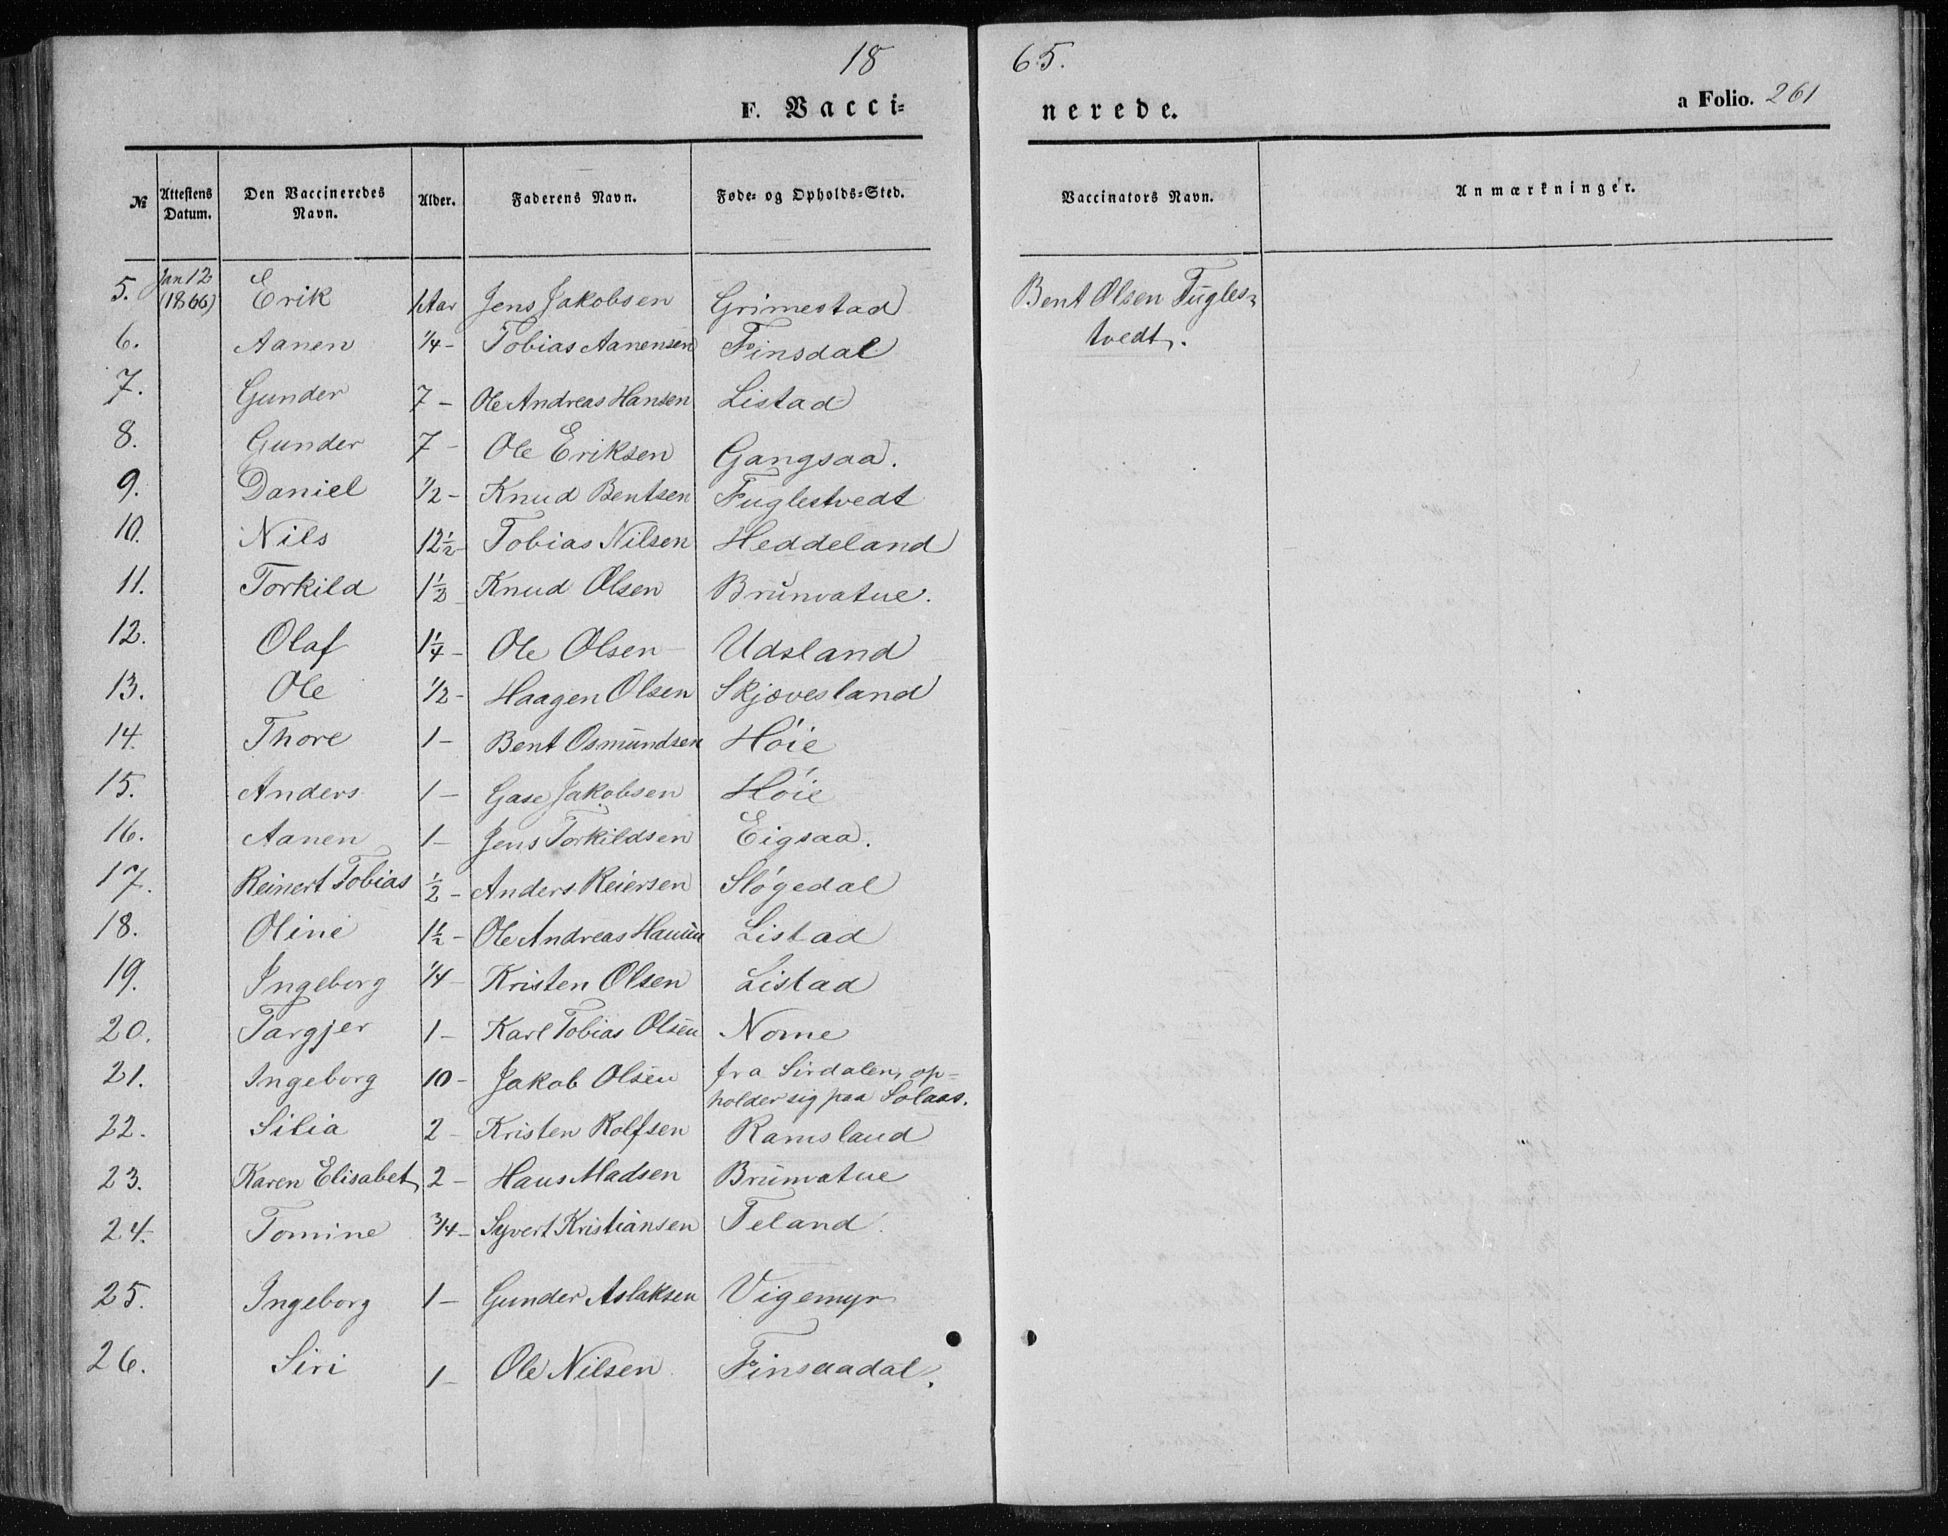 18 65.
F. Vacci= nerede. a Folio. 261
№ Attestens Datum. Den Vaccineredes Navn. Alder. Faderens Navn. Føde- og Opholds-Sted. Vaccinators Navn. Anmærkninger.
5. Jan 12 (1866) Erik 1 Aar Jens Jakobsen Grimestad Bent Olsen Fugles-
6. Aanen 1/4 - Tobias Aanensen Finsdal tvedt.
7. Gunder 7 - Ole Andreas Hansen Listad
8. Gunder 7 - Ole Eriksen Gangsaa.
9. Daniel 1/2 - Knud Bentsen Fuglestvedt
10. Nils 12 1/2 - Tobias Nilsen Heddeland
11. Torkild 1 1/2 - Knud Olsen Brunvatne.
12. Olaf 1 1/4 - Ole Olsen Udsland
13. Ole 1/2 - Haagen Olsen Skjævesland
14. Thore 1 - Bent Osmundsen Høie
15. Anders 1 - Gase Jakobsen Høie
16. Aanen 1 - Jens Torkildsen Eigsaa.
17. Reinert Tobias 1/2 - Anders Reiersen Sløgedal
18. Oline 1 1/2 - Ole Andreas Hansen Listad
19. Ingeborg 1/4 - Kristen Olsen Listad
20. Targjer 1 - Karl Tobias Olsen Nome
21. Ingeborg 10 - Jakob Olsen fra Sirdalen, op=
holder sig paa Solaas.
22. Silia 2 - Kristen Rolfsen Ramsland
23. Karen Elisabet 2 - Hans Madsen Brunvatne
24. Tomine 3/4 - Syvert Kristiansen Teland.
25. Ingeborg 1 - Gunder Aslaksen Vigemyr
26. Siri 1 - Ole Nilsen Finsaadal.